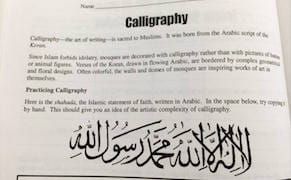 Name
Calligraphy
Calligraphy—the art of writing—is sacred to Muslims. It was born from the Arabic script of the
Koran.
Since Islam forbids idolatry, mosques are decorated with calligraphy rather than with pictures of human
or animal figures. Verses of the Koran, drawn in flowing Arabic, are bordered by complex geometric
and floral designs. Often colorful, the walls and domes of mosques are inspiring works of art in
themselves.
Practicing Calligraphy
Here is the shahada, the Islamic statement of faith, written in Arabic. In the space below, try copying it
by hand. This should give you an idea of the artistic complexity of calligraphy.
لا إله إلا الله محمد رسول الله